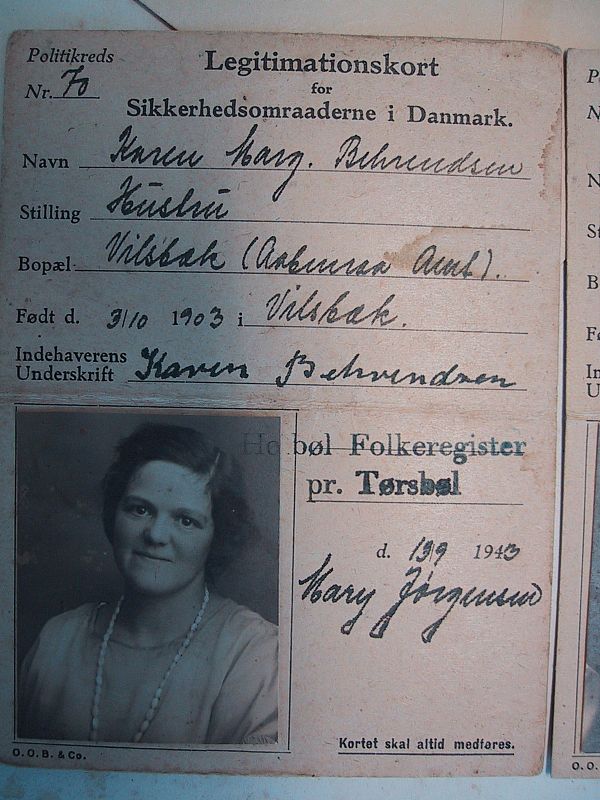 Politikreds
Nr. 70
Legitimationskort
for
Sikkerhedsomraaderne i Danmark.
Navn Karen Marg. Behrendsen
Stilling Hustru
Bopæl Vilsbæk (Aabenraa Amt).
Født d. 3/10 1903 i Vilsbæk.
Indehaverens
Underskrift Karen Behrendsen
Holbøl Folkeregister
pr. Tørsbøl
d. 13/9 1943
Mary Jørgensen
Kortet skal altid medføres.
O. O. B. & Co.
O. O.